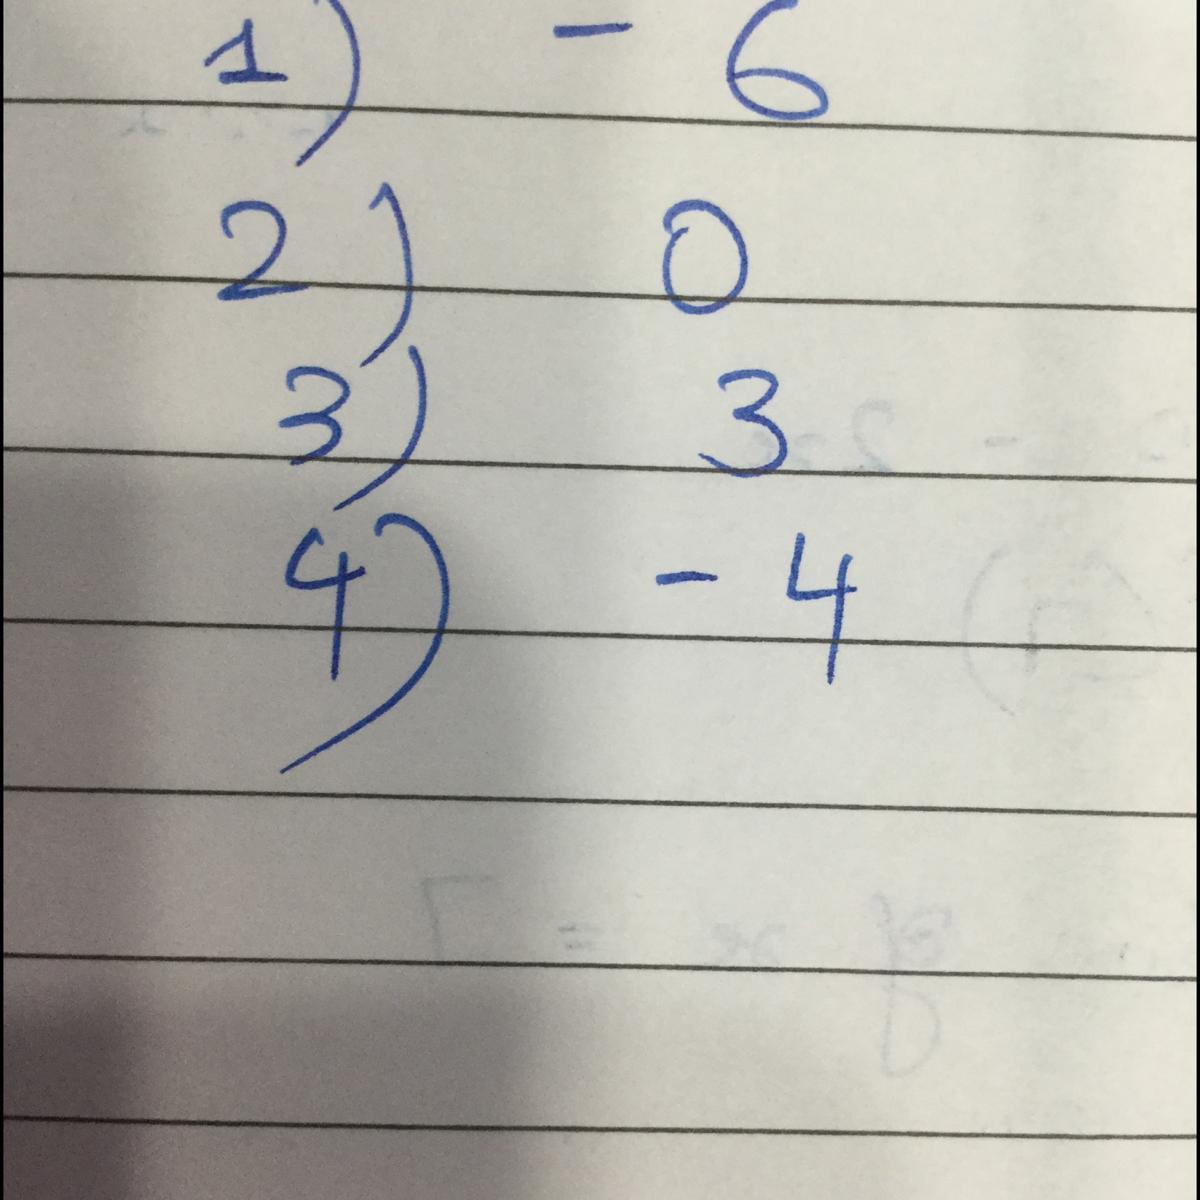 1) - 6
2) 0
3) 3
4) - 4